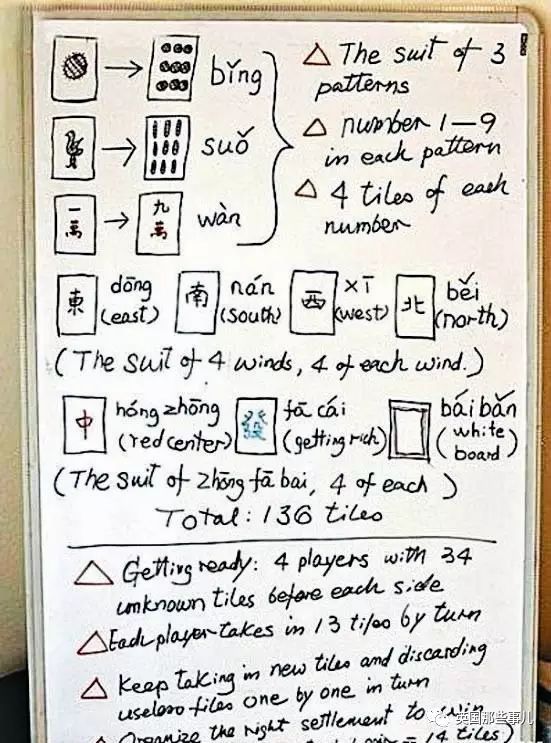 bǐng
suǒ
一萬 九萬 wàn
△ The suit of 3
patterns
△ number 1—9
in each pattern
△ 4 tiles of each
number
東 dōng 南 nán 西 xī 北 běi
(east) (south) (west) (north)
(The suit of 4 winds, 4 of each wind.)
中 hóng zhōng 發 fā cái bái bǎn
(red center) (getting rich) (white
board)
(The suit of zhōng fā bai, 4 of each)
Total: 136 tiles
△ Getting ready: 4 players with 34
unknown tiles before each side
△ Each player takes in 13 tiles by turn
△ Keep taking in new tiles and discarding
useless tiles one by one in turn
△ Organize the right settlement to win
14 tiles)
英国那些事儿